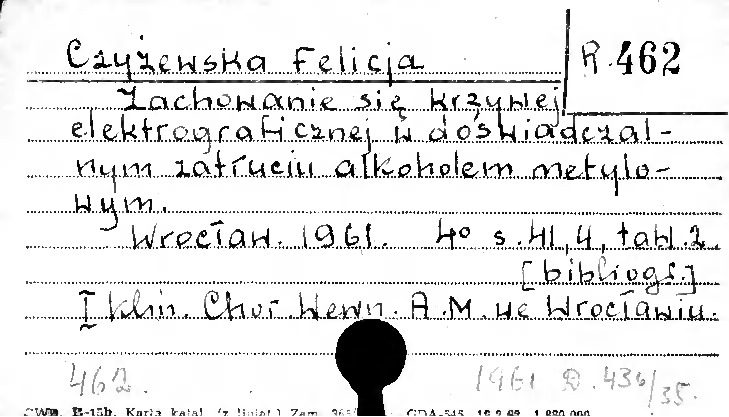 Czyżewska Felicja
R. 462
Zachowanie się krzywej
elektrograficznej w doświadczal-
nym zatruciu alkoholem metylo-
wym.
Wrocław. 1961. 4° s. 41, 4, tabl. 2.
[bibliogr.]
I Klin. Chor. Wewn. A.M. we Wrocławiu.
462. 1961 D. 436/35.
E-15b. Karta katal. (z liniat.) Zam. GDA-545 1.880.000